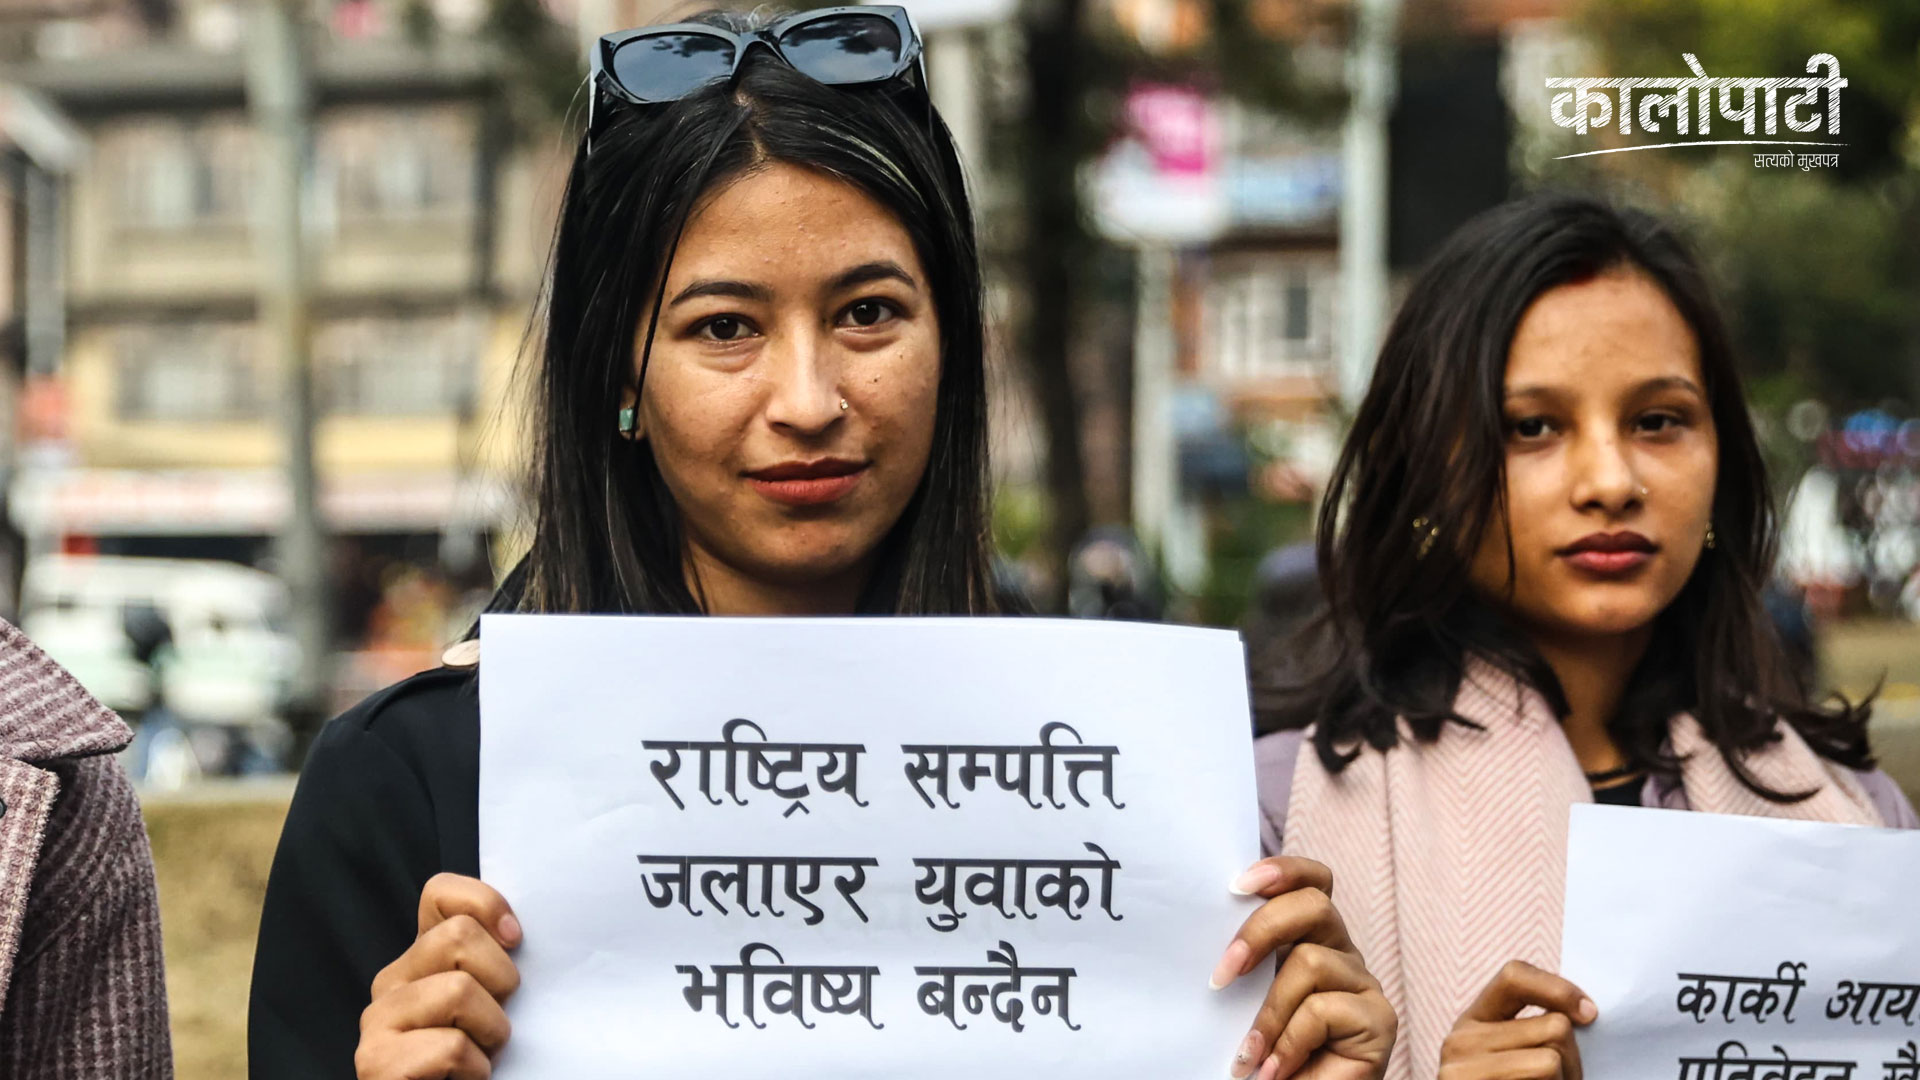 कालोपाटी
सत्यको मुखपत्र
राष्ट्रिय सम्पत्ति
जलाएर युवाको
भविष्य बन्दैन
कार्की आय